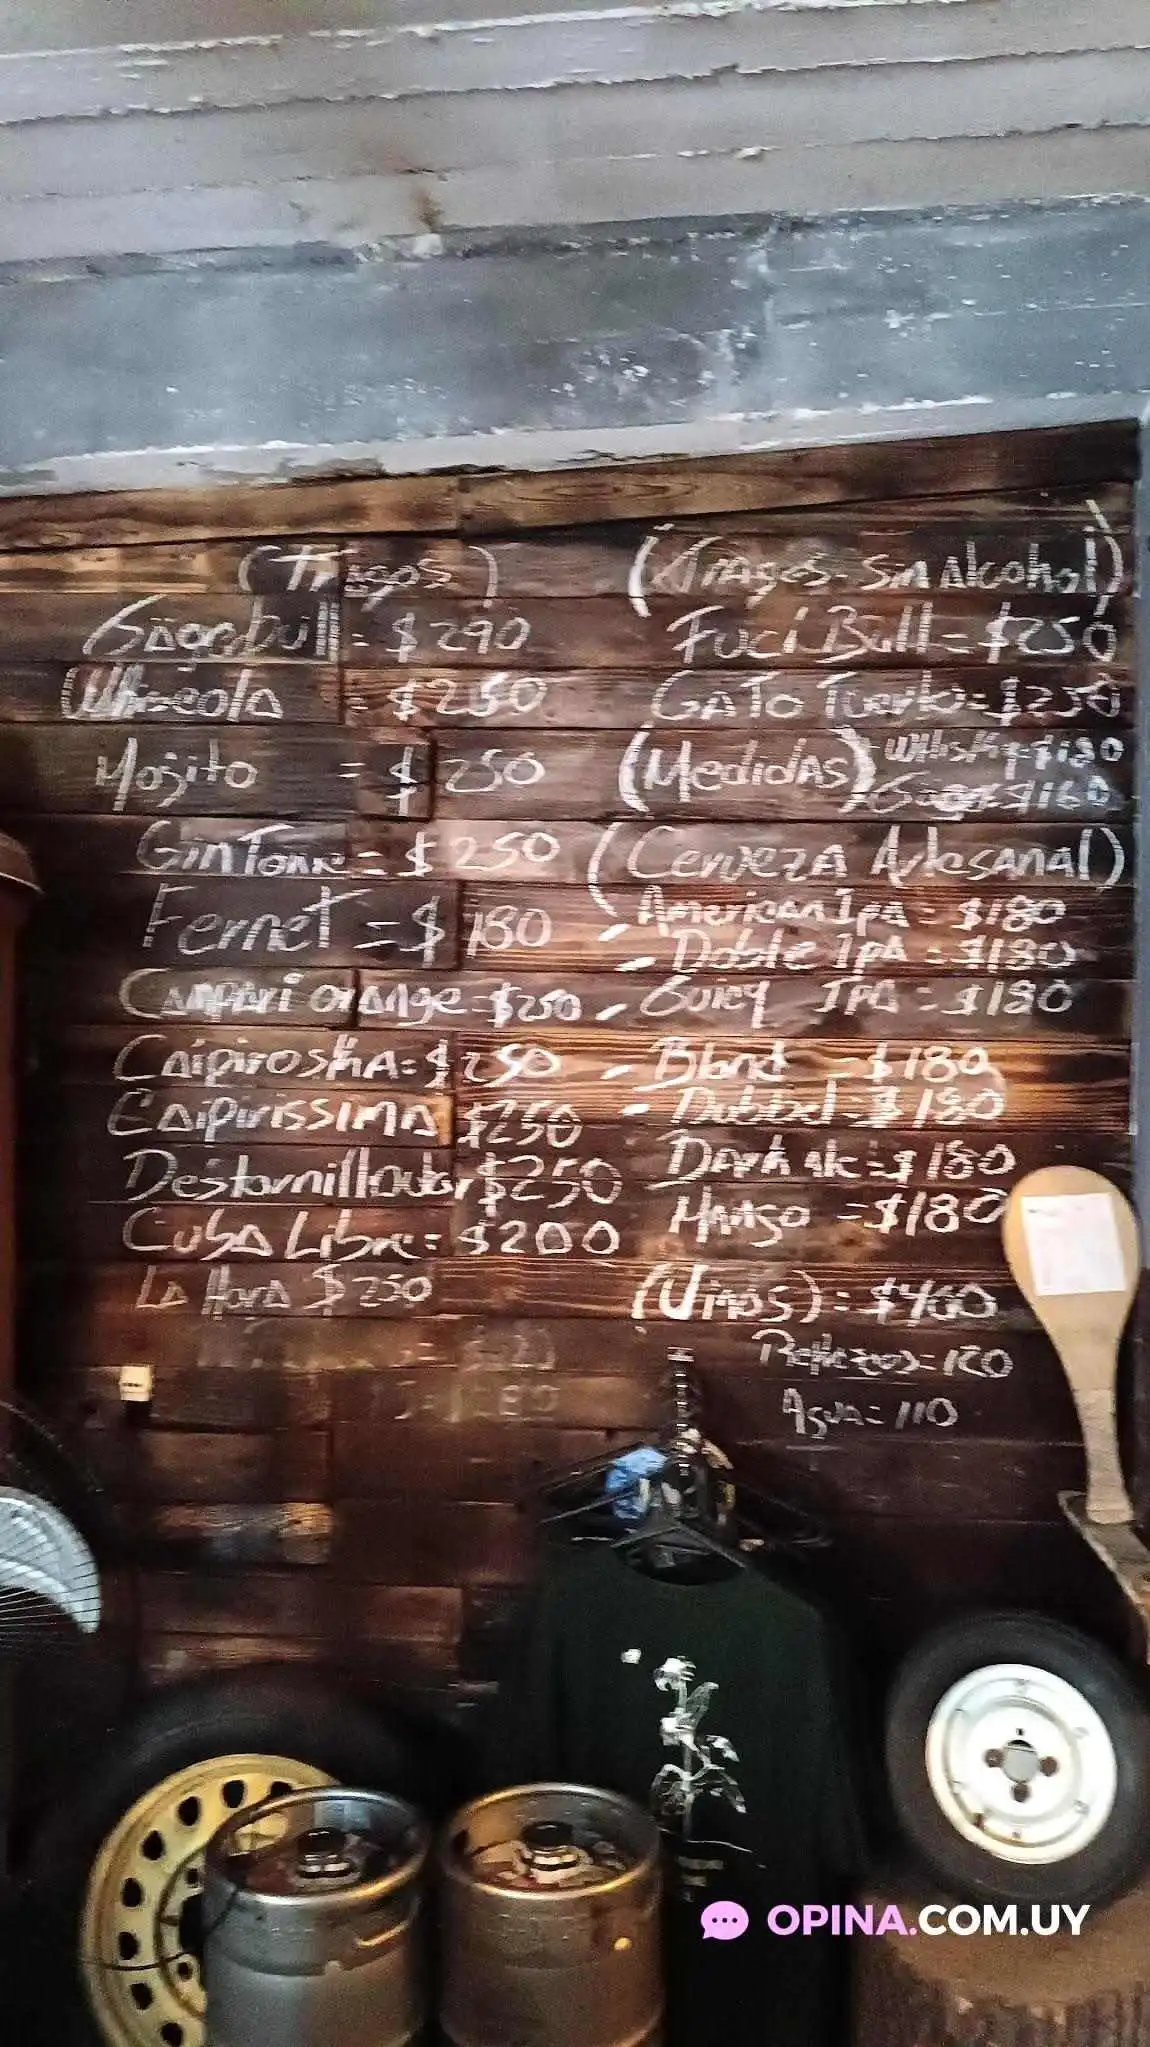 (Tragos)
Gagebull = $290
Whiscola = $250
Mojito = $250
Gin Tonic = $250
Fernet = $180
Campari orange = $250
Caipiroska = $250
Caipirissima $250
Destornillador $250
Cuba Libre = $200
La Hora $250
(Tragos Sin Alcohol)
Fuck Bull = $250
Gato Tuerto = $250
(Medidas) Whisky $180
$160
(Cerveza Artesanal)
- American Ipa = $180
- Doble Ipa = $180
- Guicy Ipa = $180
- Blond = $180
- Dubbel = $180
Dark ale = $180
Mango = $180
(Vinos) = $400
Refrezcos = 120
Agua = 110
OPINA.COM.UY